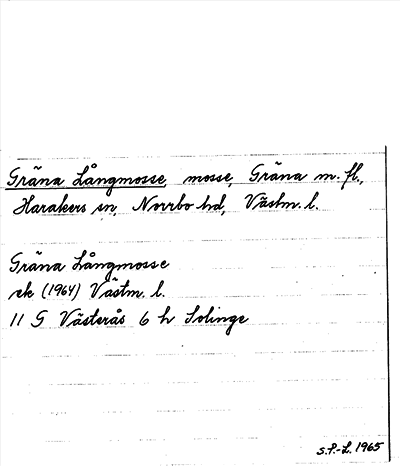 Gräna Långmosse, mosse, Gräna m. fl.,
Harakers sn, Norrbo hd, Västm. l.
Gräna Långmosse
ek (1964) Västm. l.
11 G Västerås 6 h Solinge
S.P.-L. 1965